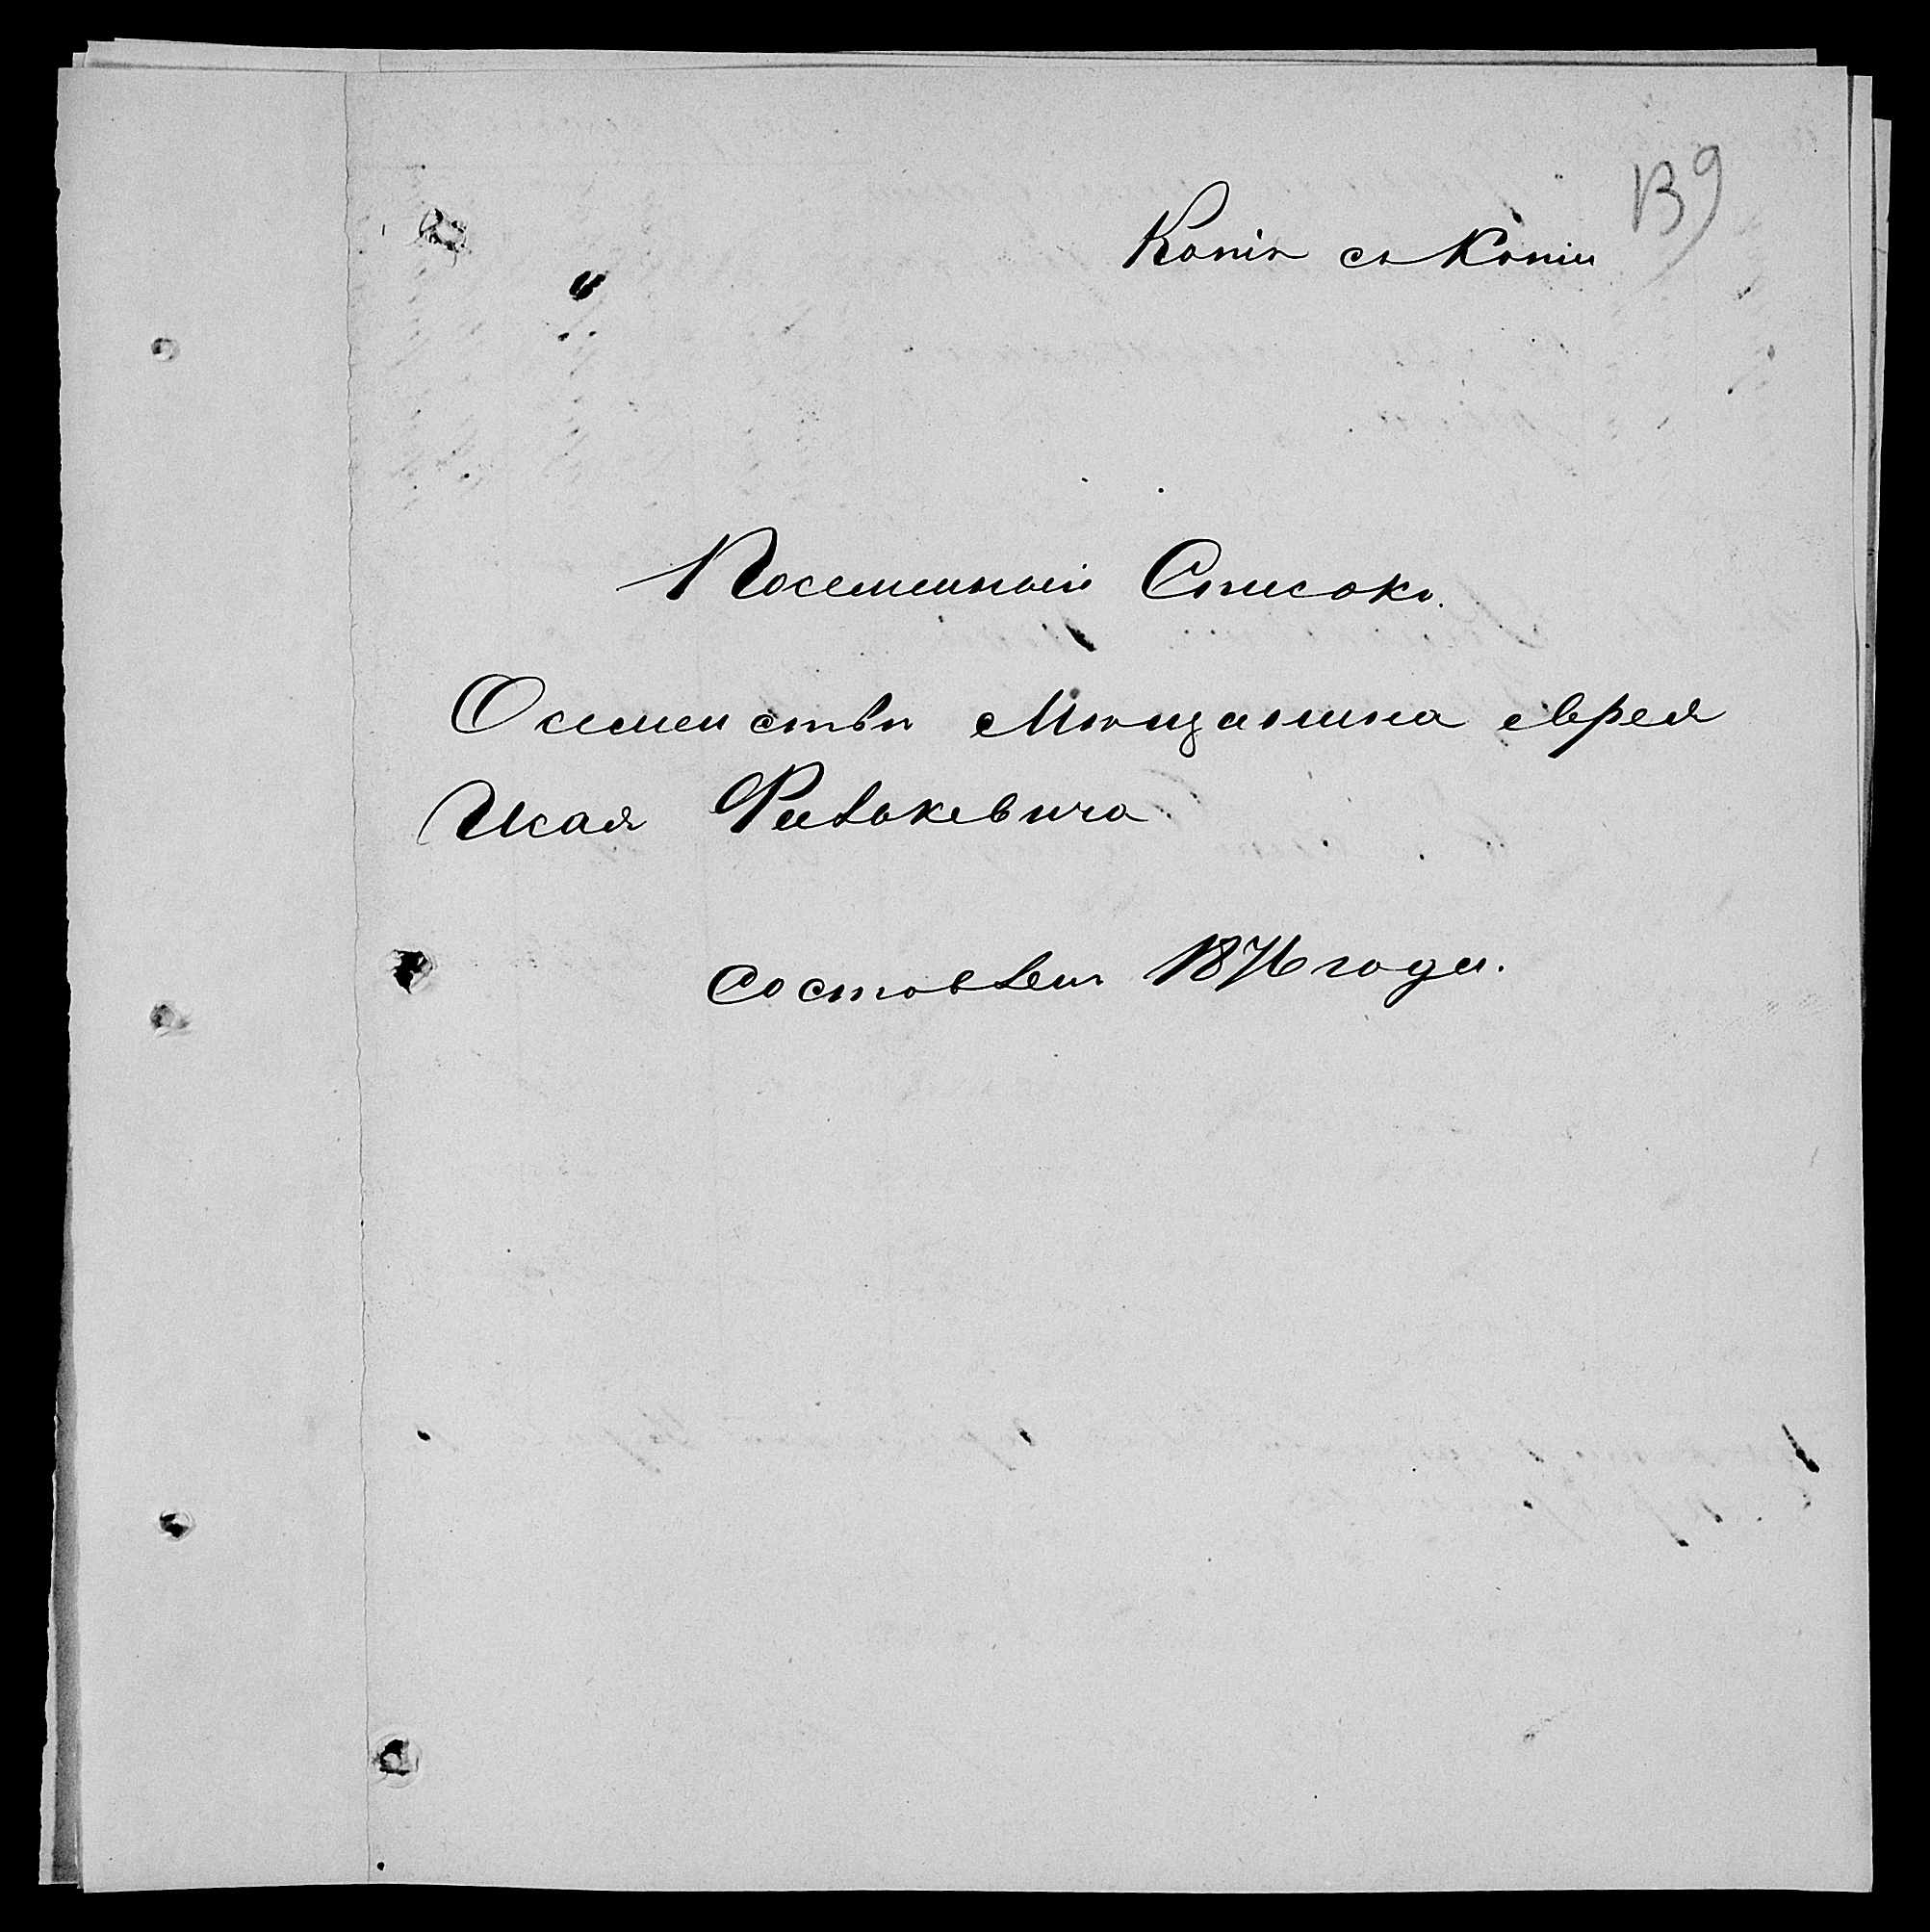 139
Копія съ Копіи
Посемейный Списокъ.
О семействѣ Мѣщанина еврея
Ицка Рабкевича
Составленъ 1876 года.